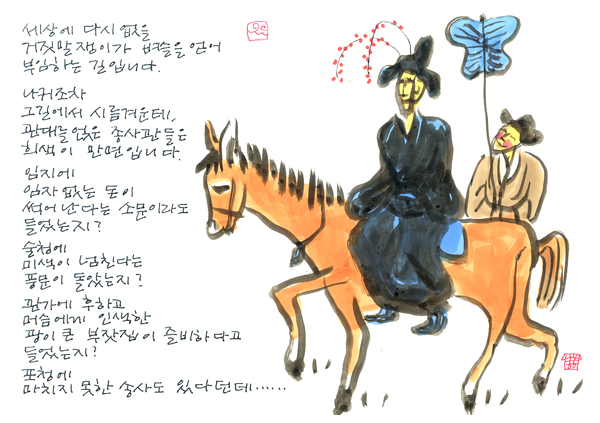 세상에 다시 없을
거짓말쟁이가 벼슬을 얻어
부임하는 길입니다.
나귀조차
그길에서 시름겨운데,
관대를 얹은 종사관들은
희색이 만면입니다.
임지에
임자 없는 돈이
썩어 난다는 소문이라도
들었는지?
술청에
미색이 넘친다는
풍문이 돌았는지?
관가에 후하고
머슴에게 인색한
광이 큰 부잣집이 즐비하다고
들었는지?
포청에
마치지 못한 송사도 있다던데······